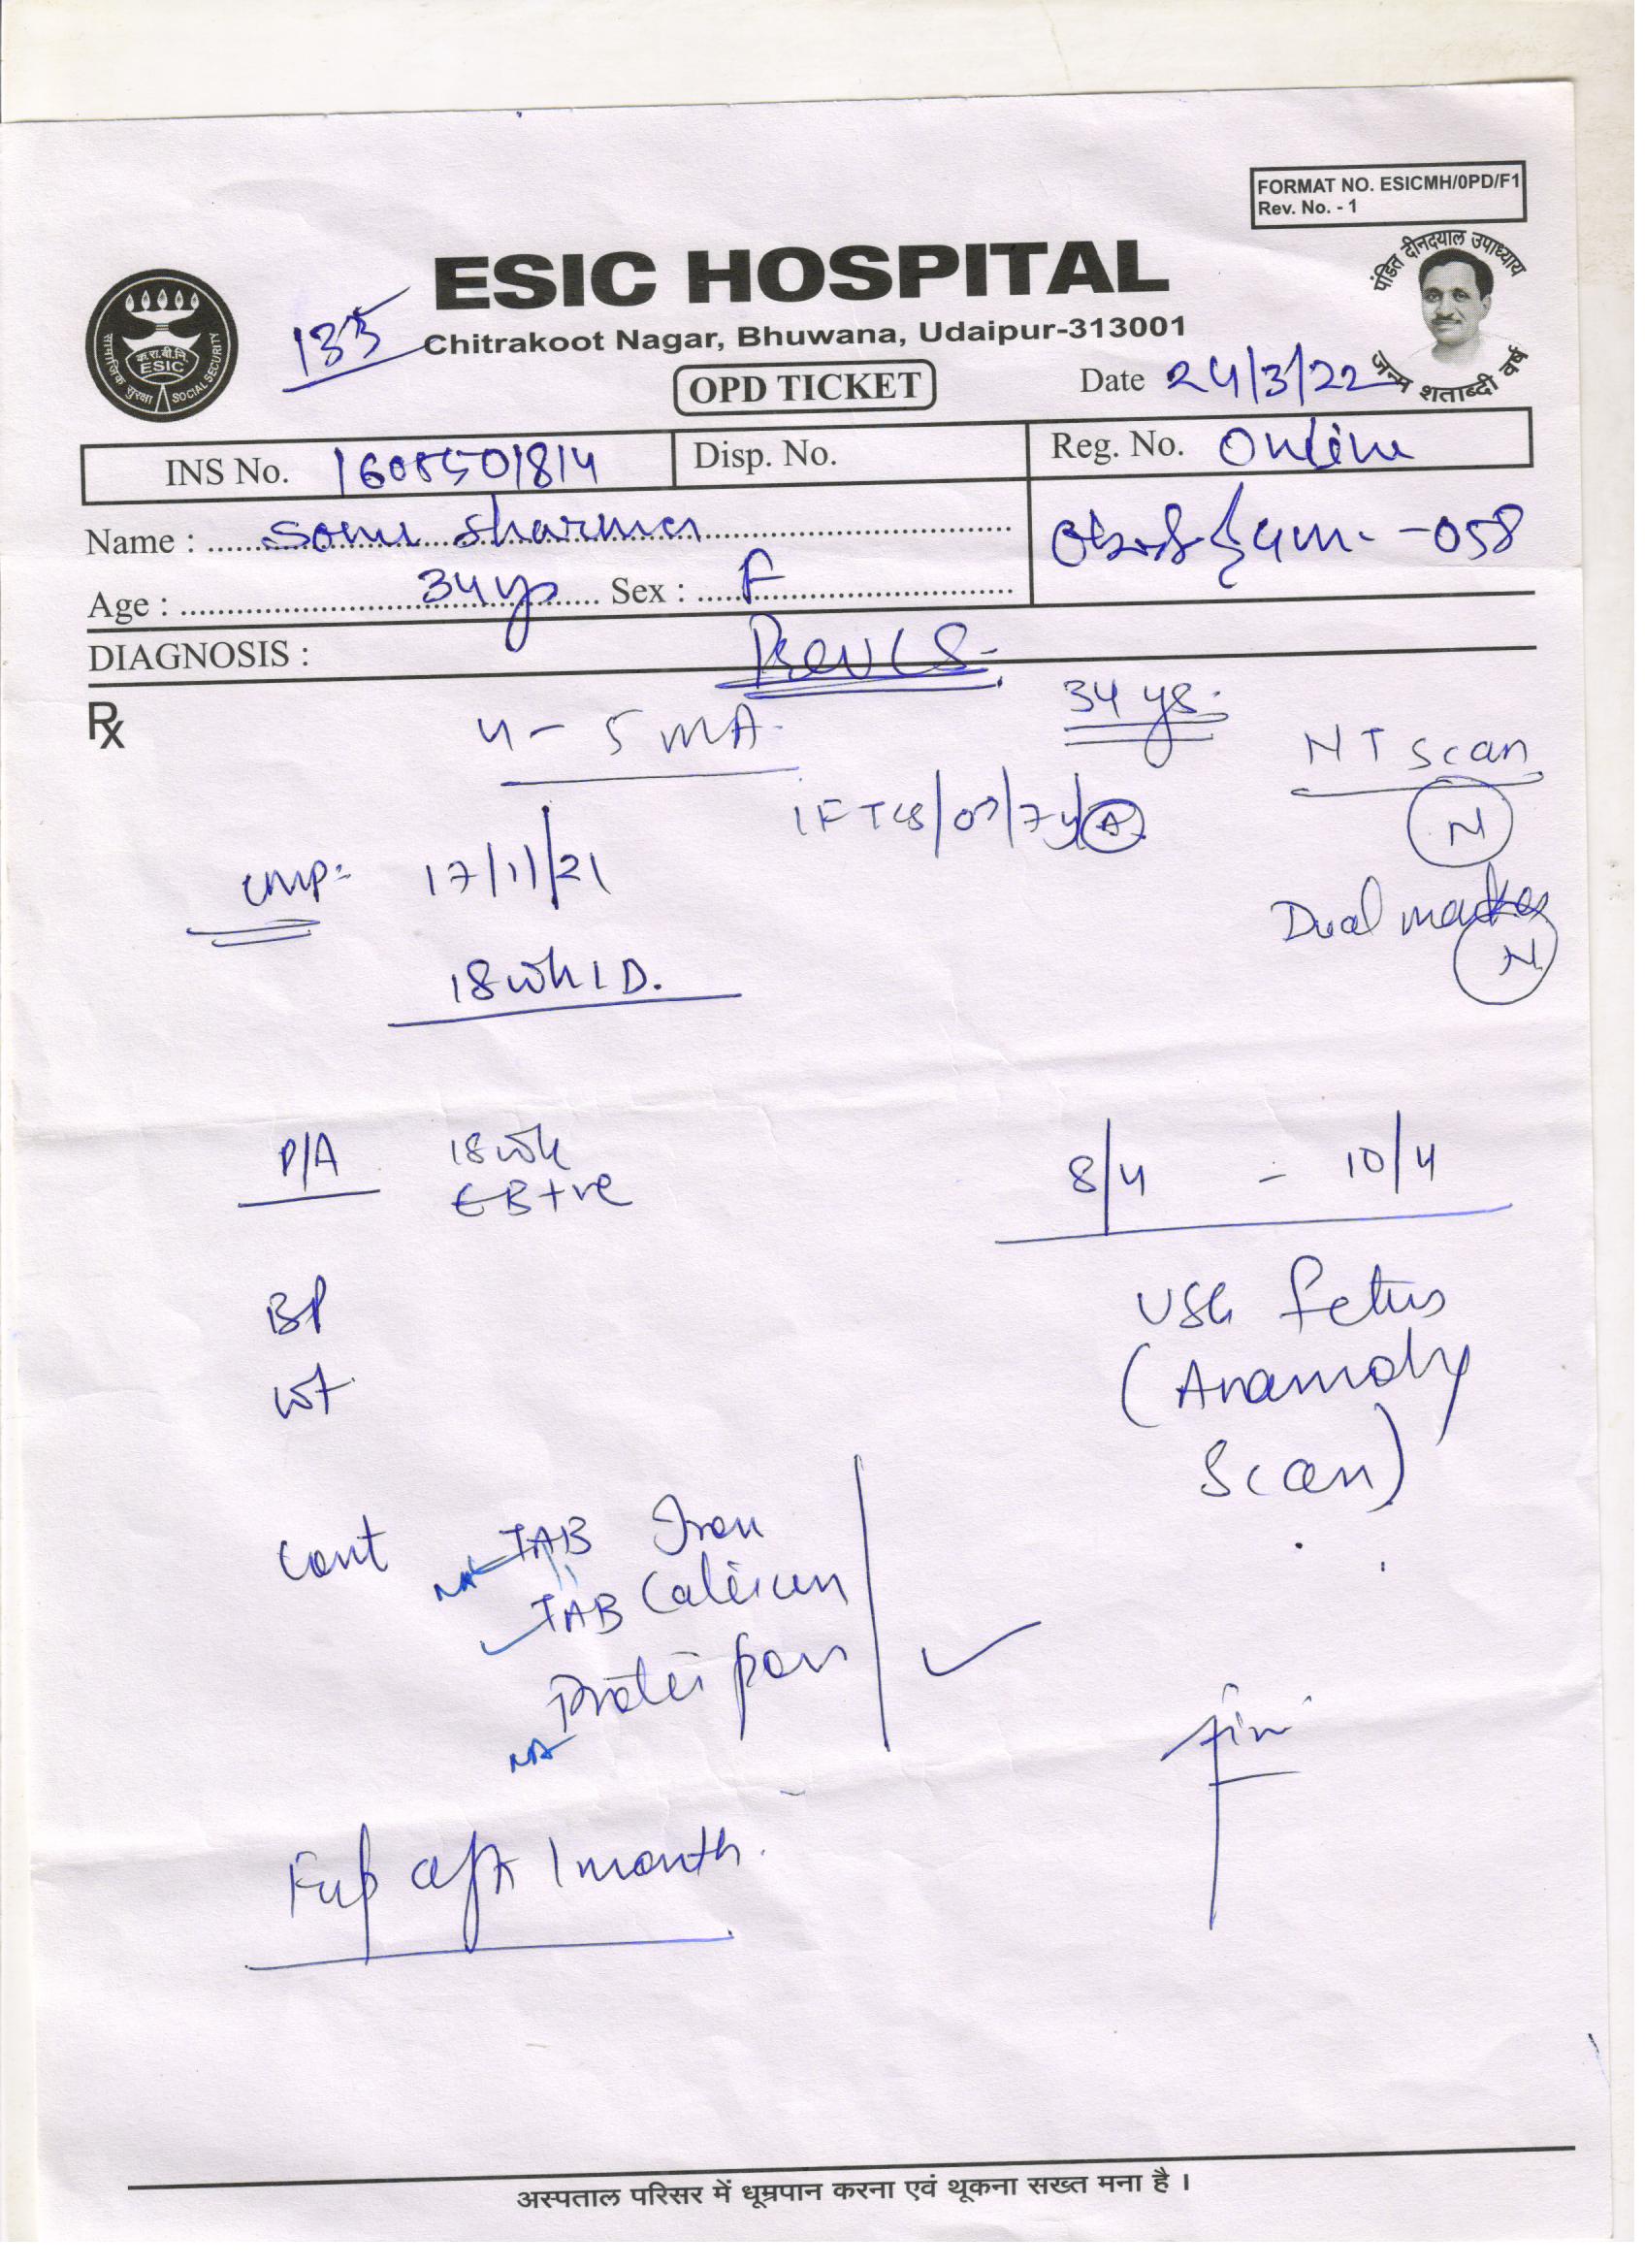 FORMAT NO. ESICMH/0PD/F1
Rev. No. - 1
ESIC HOSPITAL
Chitrakoot Nagar, Bhuwana, Udaipur-313001
पंडित दीनदयाल उपाध्याय
जन्म शताब्दी वर्ष
सामाजिक सुरक्षा
क.रा.बी.नि.
ESIC
SOCIAL SECURITY
135
OPD TICKET
Date 24/3/22
INS No. Disp. No. Reg. No. Online
Name : Sonu Sharma
-058
Age : 34 yrs Sex : F
DIAGNOSIS :
Prev CS
Rx
4 - 5 MA.
34 ys.
NT Scan
N
LMP: 17/11/21
Dual marker
N
18 wk 1 D.
P/A 18 wk
EB+ve
8/4 - 10/4
BP
USG fetus
wt
(Anamoly
Scan)
Cont TAB Iron
NA
TAB Calcium
Protein
NA
Fup aft 1 month.
अस्पताल परिसर में धूम्रपान करना एवं थूकना सख्त मना है ।